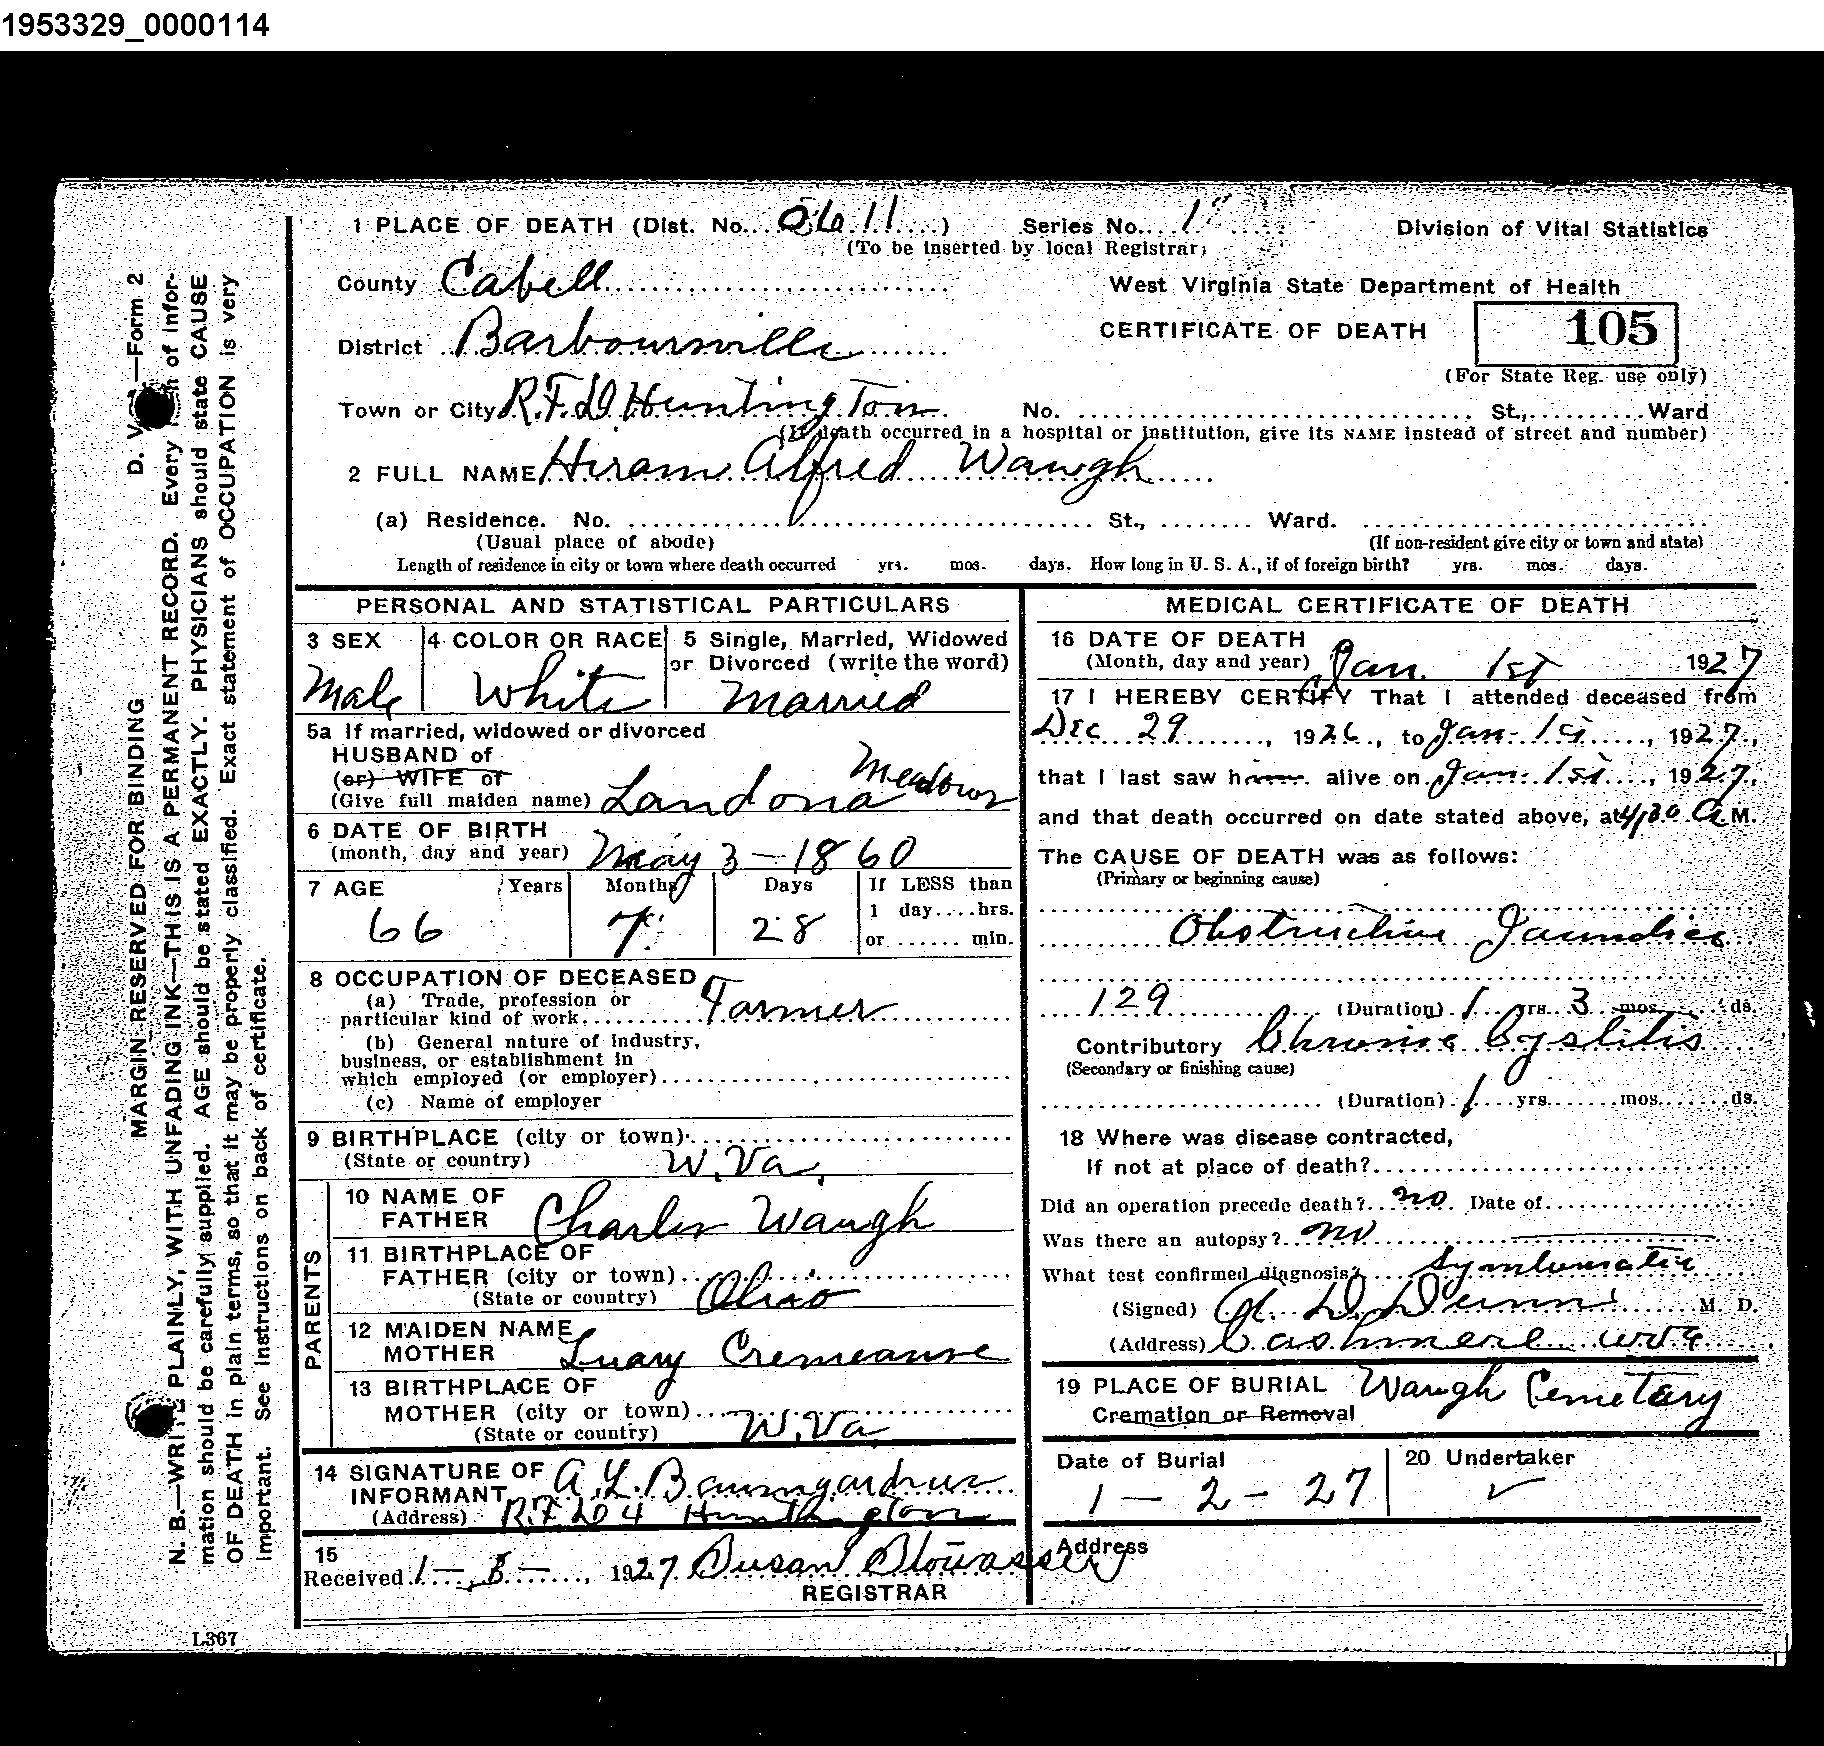 1953329_0000114
1 PLACE OF DEATH (Dist. No. 0611) Series No. 1 Division of Vital Statistics
(To be inserted by local Registrar)
County Cabell West Virginia State Department of Health
District Barboursville CERTIFICATE OF DEATH 105
(For State Reg. use only)
Town or City R.F.D. Huntington No. St., Ward
(If death occurred in a hospital or institution, give its NAME instead of street and number)
2 FULL NAME Hiram Alfred Waugh
(a) Residence. No. St., Ward.
(Usual place of abode) (If non-resident give city or town and state)
Length of residence in city or town where death occurred yrs. mos. days. How long in U. S. A., if of foreign birth? yrs. mos. days.
PERSONAL AND STATISTICAL PARTICULARS
3 SEX 4 COLOR OR RACE 5 Single, Married, Widowed
or Divorced (write the word)
Male White Married
5a If married, widowed or divorced
HUSBAND of
(or) WIFE of
(Give full maiden name) Landona Meadows
6 DATE OF BIRTH
(month, day and year) May 3 - 1860
7 AGE Years Months Days If LESS than
1 day....hrs.
or ...... min.
66 7 28
8 OCCUPATION OF DECEASED
(a) Trade, profession or
particular kind of work Farmer
(b) General nature of industry,
business, or establishment in
which employed (or employer)
(c) Name of employer
9 BIRTHPLACE (city or town)
(State or country) W.Va.
PARENTS
10 NAME OF
FATHER Charles Waugh
11 BIRTHPLACE OF
FATHER (city or town)
(State or country) Ohio
12 MAIDEN NAME
MOTHER Luary Cremeanse
13 BIRTHPLACE OF
MOTHER (city or town)
(State or country) W.Va.
14 SIGNATURE OF
INFORMANT A. L. Baumgardner
(Address) R.F.D 4 Huntington
15
Received 1 - 8 - , 1927 Susan Blowasser
REGISTRAR
MEDICAL CERTIFICATE OF DEATH
16 DATE OF DEATH
(Month, day and year) Jan. 1st 1927
17 I HEREBY CERTIFY That I attended deceased from
Dec 29, 1926, to Jan. 1st, 1927,
that I last saw him alive on Jan. 1st, 1927,
and that death occurred on date stated above, at 4:30 A.M.
The CAUSE OF DEATH was as follows:
(Primary or beginning cause)
Obstructive Jaundice
129 (Duration) 1 yrs. 3 mos. ds.
Contributory Chronic Cystitis
(Secondary or finishing cause)
(Duration) 1 yrs. mos. ds.
18 Where was disease contracted,
if not at place of death?
Did an operation precede death? no Date of
Was there an autopsy? no
What test confirmed diagnosis? Symtomatic
(Signed) D. Dunn M. D.
(Address) Cashmere wva
19 PLACE OF BURIAL Waugh Cemetary
Cremation or Removal
Date of Burial 20 Undertaker
1 - 2 - 27 ✓
Address
MARGIN RESERVED FOR BINDING D. V. —Form 2
N. B.—WRITE PLAINLY, WITH UNFADING INK—THIS IS A PERMANENT RECORD. Every item of information
should be carefully supplied. AGE should be stated EXACTLY. PHYSICIANS should state CAUSE
OF DEATH in plain terms, so that it may be properly classified. Exact statement of OCCUPATION is very
important. See instructions on back of certificate.
L367